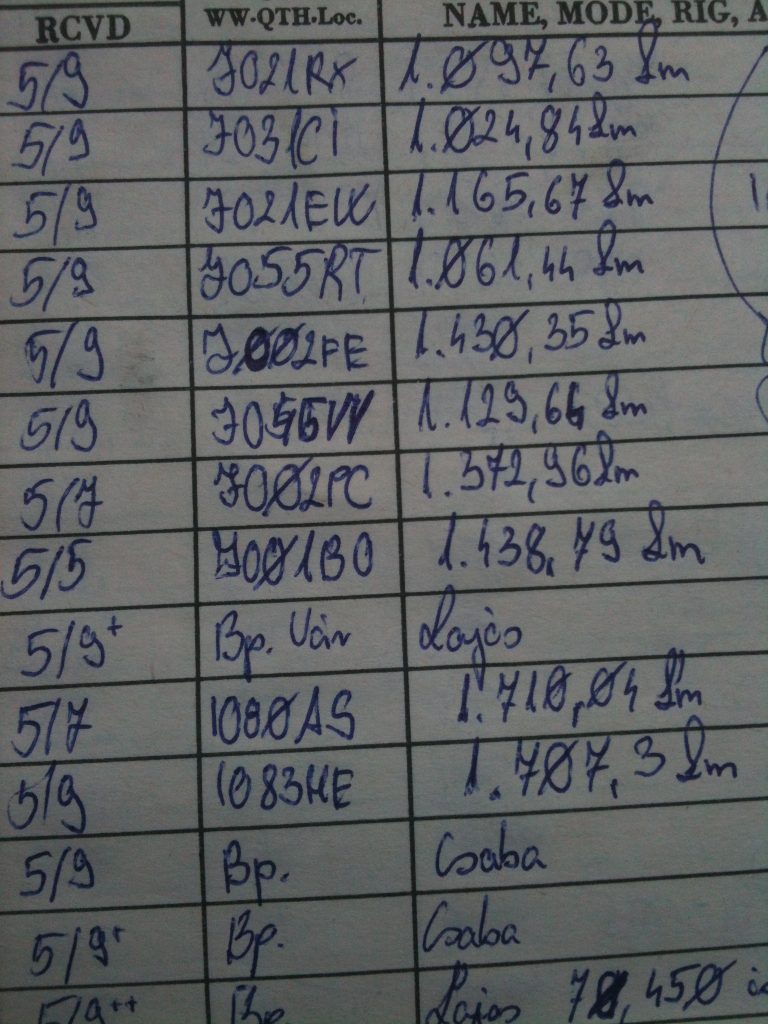 RCVD WW-QTH-Loc. NAME, MODE, RIG, A
5/9 JO21RX 1.Ø97,63 km
5/9 JO31CI 1.Ø24,84 km
5/9 JO21EW 1.165,67 km
5/9 JO55RT 1.Ø61,44 km
5/9 JOØ2PE 1.43Ø,35 km
5/9 1.129,64 km
5/7 JOØ2PC 1.372,96 km
5/5 JOØ1BO 1.438,79 km
5/9+ Bp. Vár Lajos
5/7 IO8ØAS 1.71Ø,Ø4 km
5/9 IO83HE 1.7Ø7,3 km
5/9 Bp. Csaba
5/9+ Bp. Csaba
5/9++ Bp Lajos 45Ø